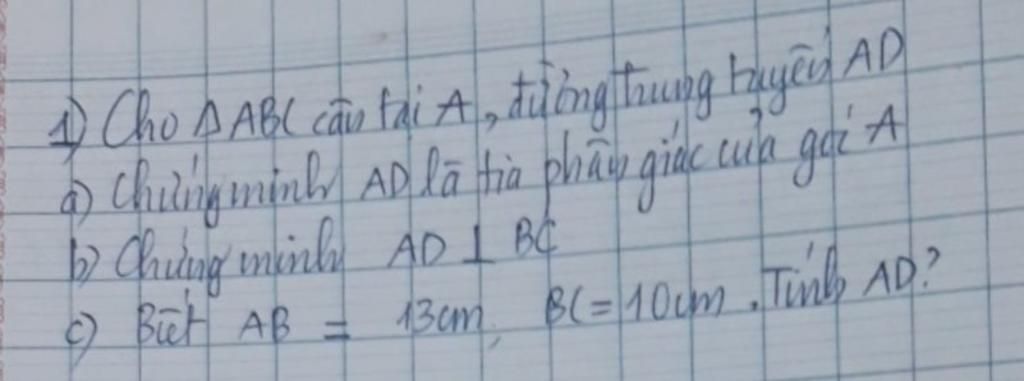 1) Cho Δ ABC cân tại A, đường trung tuyến AD
a) Chứng minh AD là tia phân giác của góc A
b) Chứng minh AD ⊥ BC
c) Biết AB = 13cm, BC = 10cm. Tính AD?